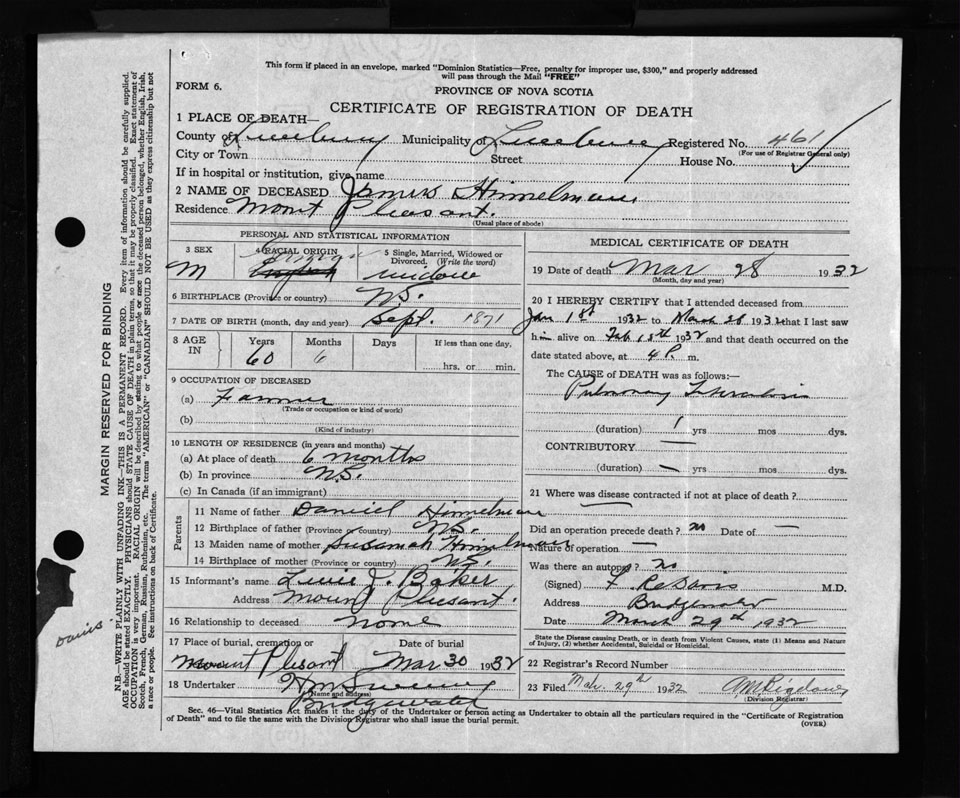 This form if placed in an envelope, marked "Dominion Statistics—Free, penalty for improper use, $300," and properly addressed
will pass through the Mail "FREE"
FORM 6.
PROVINCE OF NOVA SCOTIA
CERTIFICATE OF REGISTRATION OF DEATH
1 PLACE OF DEATH—
County of Lunenburg Municipality of Lunenburg Registered No. 461
(For use of Registrar General only)
City or Town Street House No.
If in hospital or institution, give name
2 NAME OF DECEASED James Himmelman
Residence Mount Pleasant.
(Usual place of abode)
PERSONAL AND STATISTICAL INFORMATION
3 SEX
M
4 RACIAL ORIGIN
English
5 Single, Married, Widowed or Divorced. (Write the word)
6 BIRTHPLACE (Province or country) N.S.
7 DATE OF BIRTH (month, day and year) Sept. 1871
8 AGE IN
Years Months Days If less than one day,
60 6 hrs. or min.
9 OCCUPATION OF DECEASED
(a) Farmer
(Trade or occupation or kind of work)
(b)
(Kind of industry)
10 LENGTH OF RESIDENCE (in years and months)
(a) At place of death 6 months
(b) In province N.S.
(c) In Canada (if an immigrant)
Parents
11 Name of father Daniel Himmelman
12 Birthplace of father (Province or country) N.S.
13 Maiden name of mother Susanah Himmelman
14 Birthplace of mother (Province or country) N.S.
15 Informant's name J. Baker
Address Mount Plesant.
16 Relationship to deceased None
17 Place of burial, cremation or Date of burial
Mount Plesant Mar 30 1932
18 Undertaker
(Name and address)
Bridgewater
MEDICAL CERTIFICATE OF DEATH
19 Date of death Mar 28 1932
(Month, day and year)
20 I HEREBY CERTIFY that I attended deceased from
Jan 18th 1932 to March 28 1932 that I last saw
him alive on Feb 18th 1932 and that death occurred on the
date stated above, at 4 P. m.
The CAUSE OF DEATH was as follows:—
Pulmonary Tuberculosis
(duration) 1 yrs mos dys.
CONTRIBUTORY —
(duration) — yrs mos dys.
21 Where was disease contracted if not at place of death?
Did an operation precede death? no Date of —
Nature of operation —
Was there an autopsy? no
(Signed) M.D.
Address Bridgewater
Date March 29th 1932
State the Disease causing Death, or in death from Violent Causes, state (1) Means and Nature
of Injury, (2) whether Accidental, Suicidal or Homicidal.
22 Registrar's Record Number
23 Filed Mar. 29th 1932
(Division Registrar)
Sec. 46—Vital Statistics Act makes it the duty of the Undertaker or person acting as Undertaker to obtain all the particulars required in the "Certificate of Registration
of Death" and to file the same with the Division Registrar who shall issue the burial permit.
(OVER)
MARGIN RESERVED FOR BINDING
N.B.—WRITE PLAINLY WITH UNFADING INK—THIS IS A PERMANENT RECORD. Every item of information should be carefully supplied.
AGE should be stated EXACTLY. PHYSICIANS should STATE CAUSE OF DEATH in plain terms, so that it may be properly classified. Exact statement of
OCCUPATION is very important. RACIAL ORIGIN will be described by stating to what people or race the deceased person belonged, whether English, Irish,
Scotch, French, German, Russian, Ruthenian, etc. The terms "AMERICAN" or "CANADIAN" SHOULD NOT BE USED as they express citizenship but not
a race or people. See instructions on back of Certificate.
Davis.